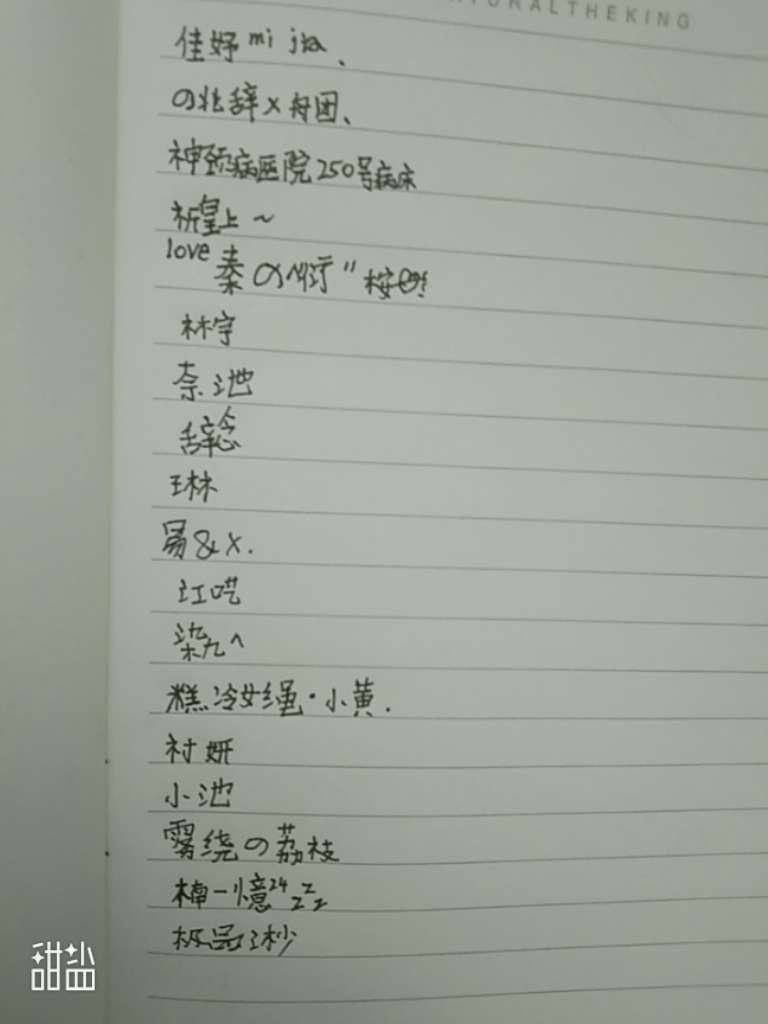 URALTHEKING
佳妤 mi jia、
の兆辞×舟团、
神颈病医院250号病床
祈皇上~
love 秦の衍"桉
林宇
奈池
辞念
琳
&X.
江呓
染九ヘ
糕冷女绳·小黄.
衬妍
小池
雾绕の荔枝
楠一憶24zzz
极品
甜盐